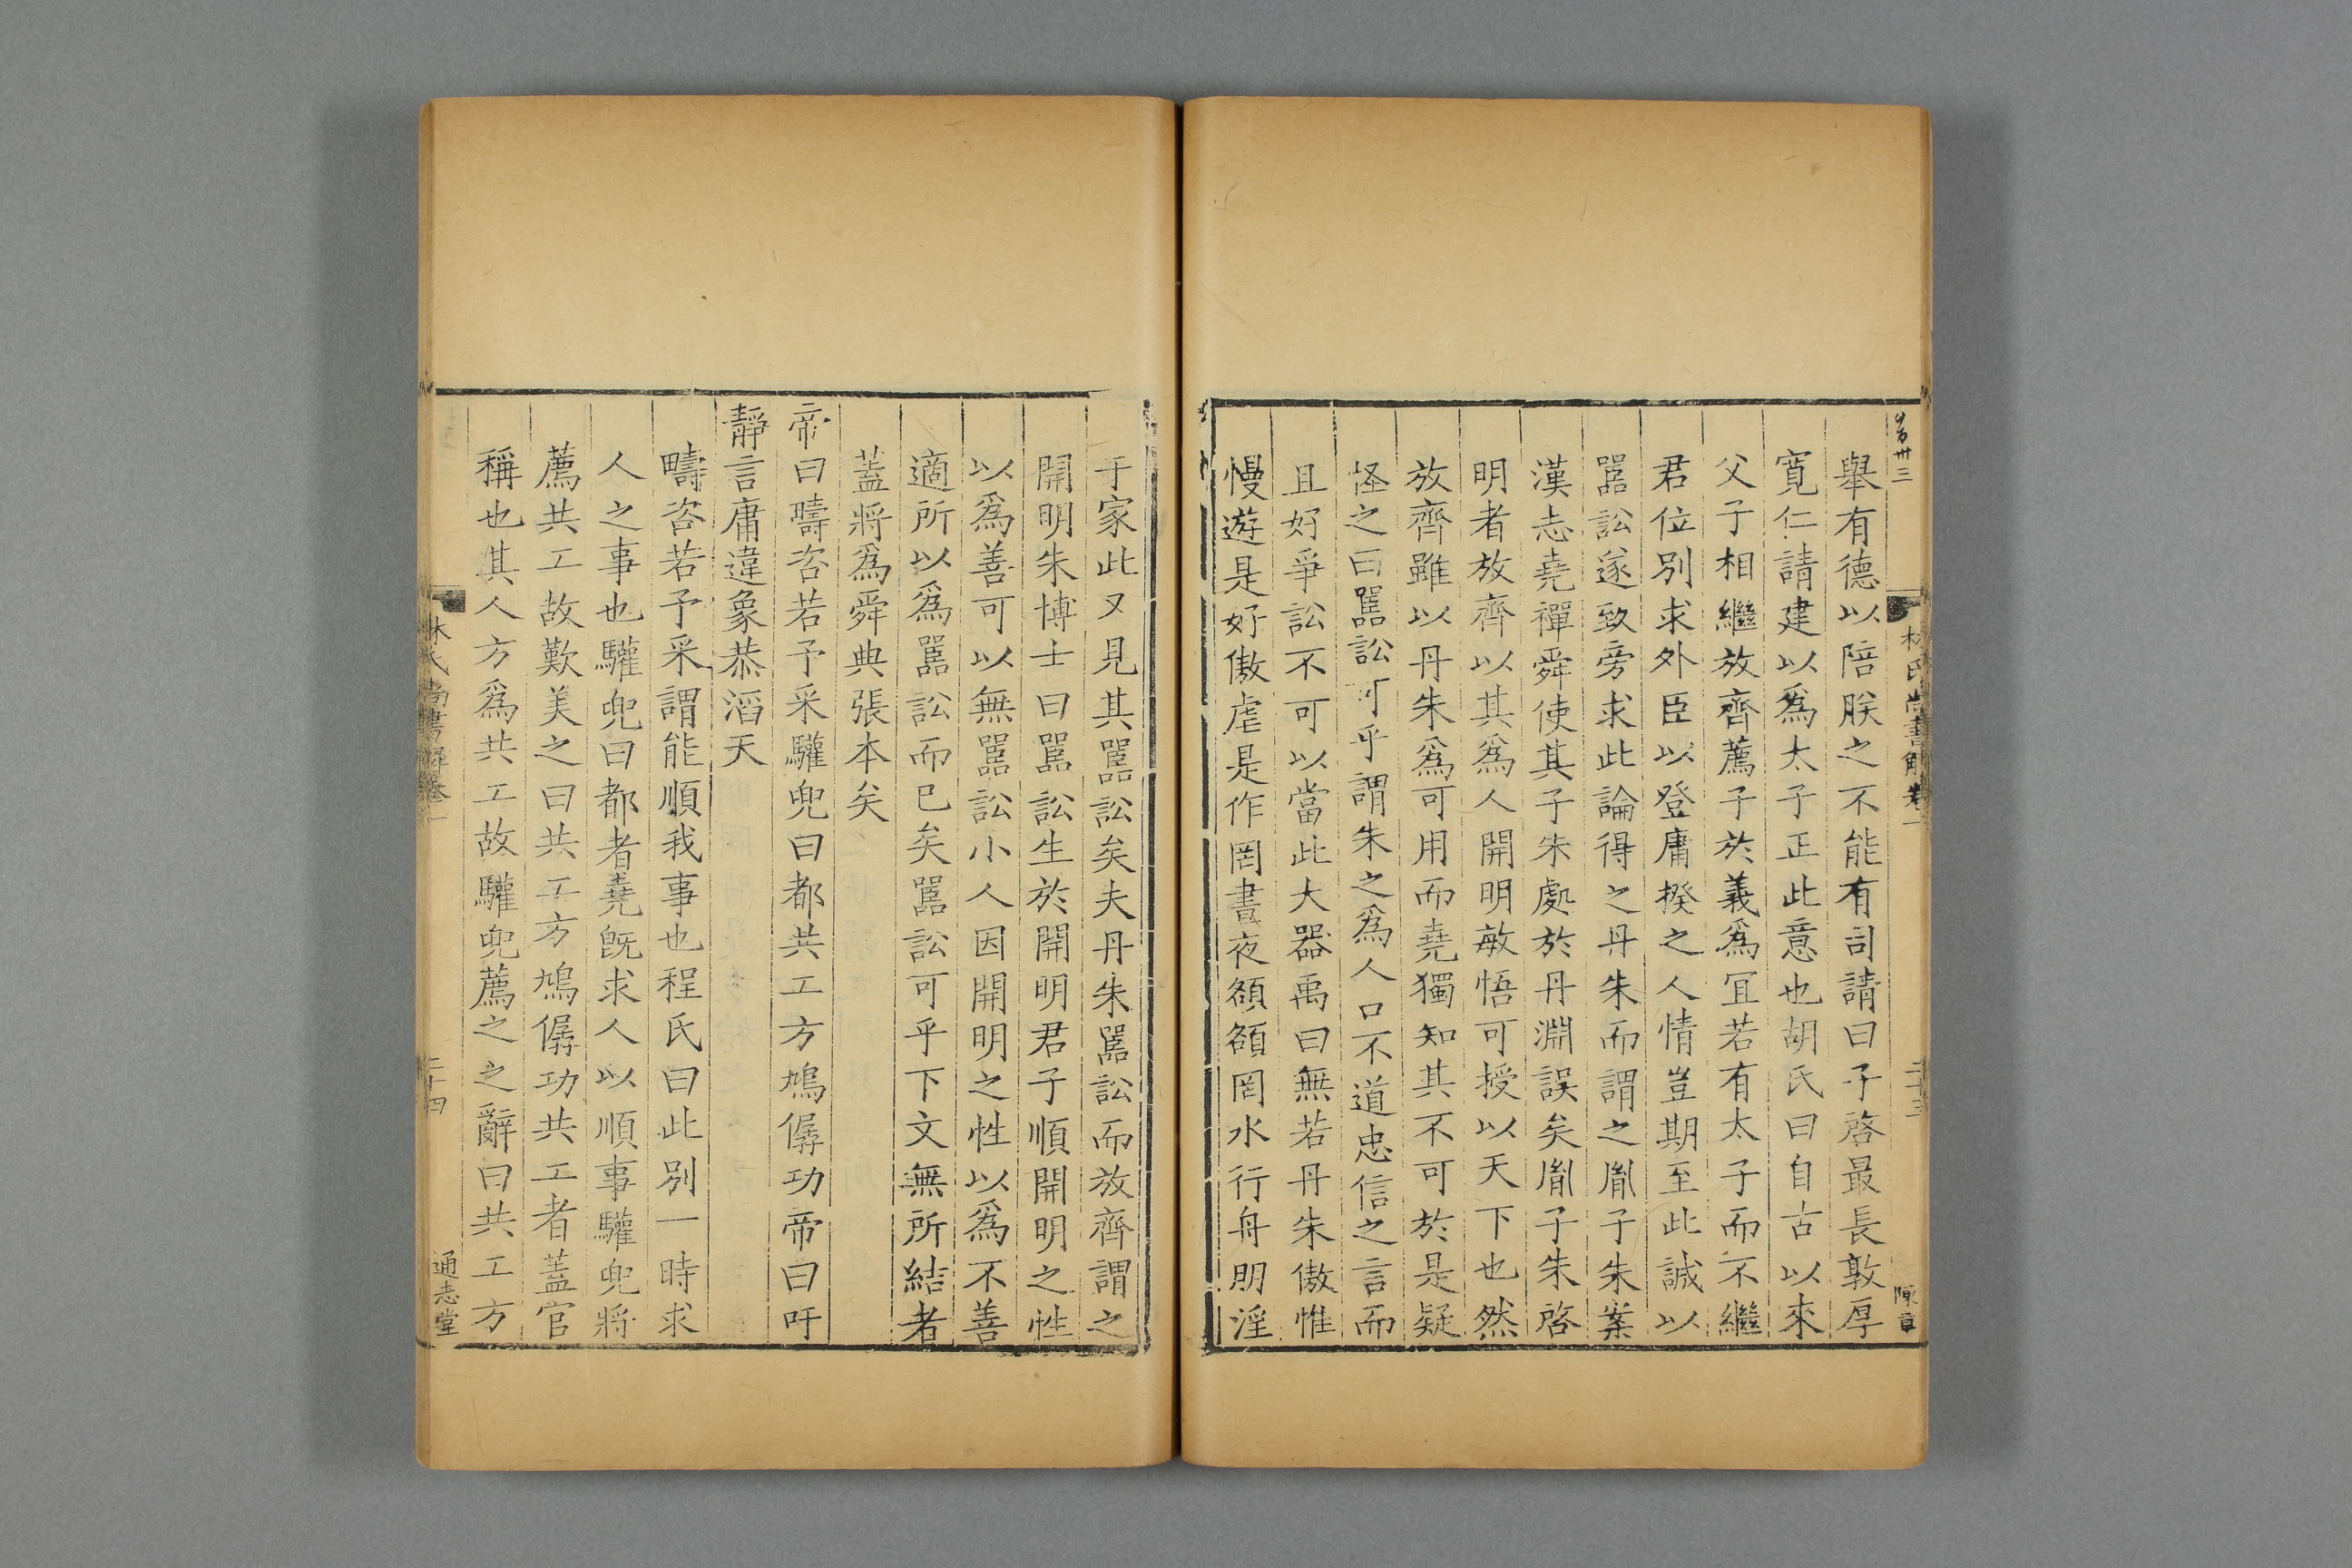 林氏尚書解卷一
二十三
陳章
舉有德以陪朕之不能有司請曰子啓最長敦厚
寬仁請建以爲太子正此意也胡氏曰自古以來
父子相繼放齊薦子於義爲宜若有太子而不繼
君位別求外臣以登庸揆之人情豈期至此誠以
嚚訟遂致旁求此論得之丹朱而謂之胤子朱案
漢志堯禪舜使其子朱處於丹淵誤矣胤子朱啓
明者放齊以其爲人開明敏悟可授以天下也然
放齊雖以丹朱爲可用而堯獨知其不可於是疑
怪之曰嚚訟可乎謂朱之爲人口不道忠信之言而
且好爭訟不可以當此大器禹曰無若丹朱傲惟
慢遊是好傲虐是作罔晝夜頟頟罔水行舟朋淫
于家此又見其嚚訟矣夫丹朱嚚訟而放齊謂之
開明朱博士曰嚚訟生於開明君子順開明之性
以爲善可以無嚚訟小人因開明之性以爲不善
適所以爲嚚訟而已矣嚚訟可乎下文無所結者
蓋將爲舜典張本矣
帝曰疇咨若予采驩兜曰都共工方鳩僝功帝曰吁
靜言庸違象恭滔天
疇咨若予采謂能順我事也程氏曰此別一時求
人之事也驩兜曰都者堯旣求人以順事驩兜將
薦共工故歎美之曰共工方鳩僝功共工者蓋官
稱也其人方爲共工故驩兜薦之之辭曰共工方
林氏尚書解卷一
二十四
通志堂